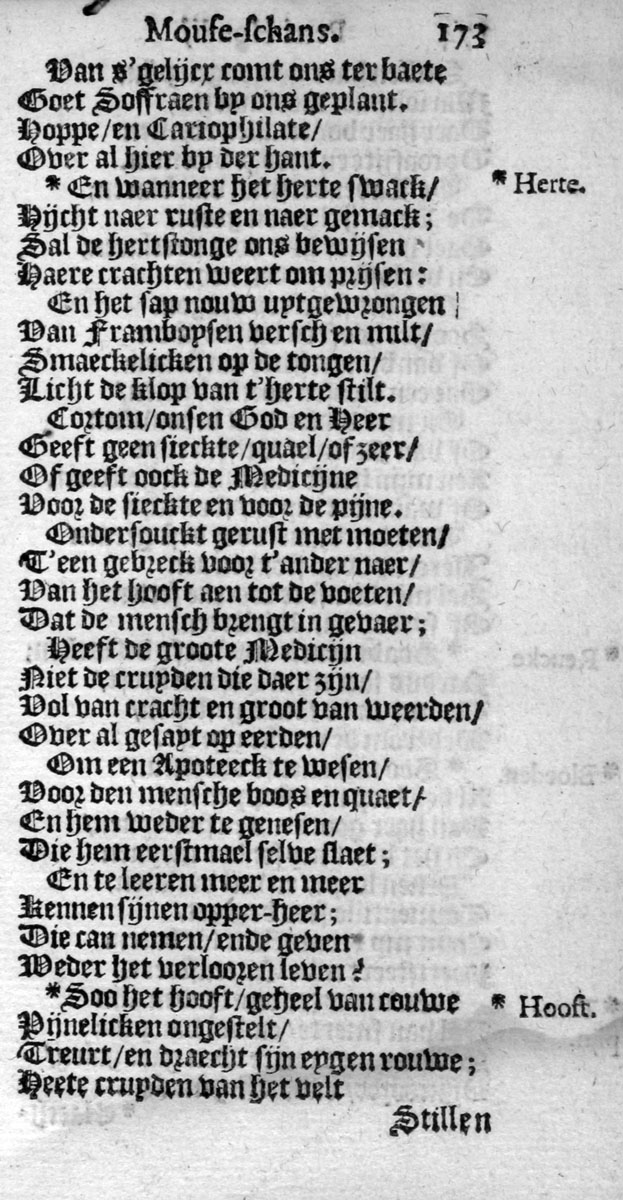 Mouse-schans. 173
Van s'gelijcx comt ons ter baete
Goet Soffraen by ons geplant.
Hoppe/en Cariophilate/
Over al hier by der hant.
* En wanneer het herte swack/ * Herte.
Hijcht naer ruste en naer gemack;
Sal de hertstonge ons bewijsen
Haere crachten weert om prijsen:
En het sap nouw uytgewrongen
Van Framboysen versch en milt/
Smaeckelicken op de tongen/
Licht de klop van t'herte stilt.
Cortom/onsen God en Heer
Geeft geen sieckte/quael/of zeer/
Of geeft oock de Medicijne
Voor de sieckte en voor de pijne.
Ondersouckt gerust met moeten/
T'een gebreck voor t'ander naer/
Van het hooft aen tot de voeten/
Dat de mensch brengt in gevaer;
Heeft de groote Medicijn
Niet de cruyden die daer zijn/
Vol van cracht en groot van weerden/
Over al gesayt op eerden/
Om een Apoteeck te wesen/
Voor den mensche boos en quaet/
En hem weder te genesen/
Die hem eerstmael selve slaet;
En te leeren meer en meer
Kennen sijnen opper-heer;
Die can nemen/ende geven
Weder het verlooren leven?
*Soo het hooft/geheel van couwe * Hooft.
Pijnelicken ongestelt/
Treurt/en draecht sijn eygen rouwe;
Heete cruyden van het velt
Stillen